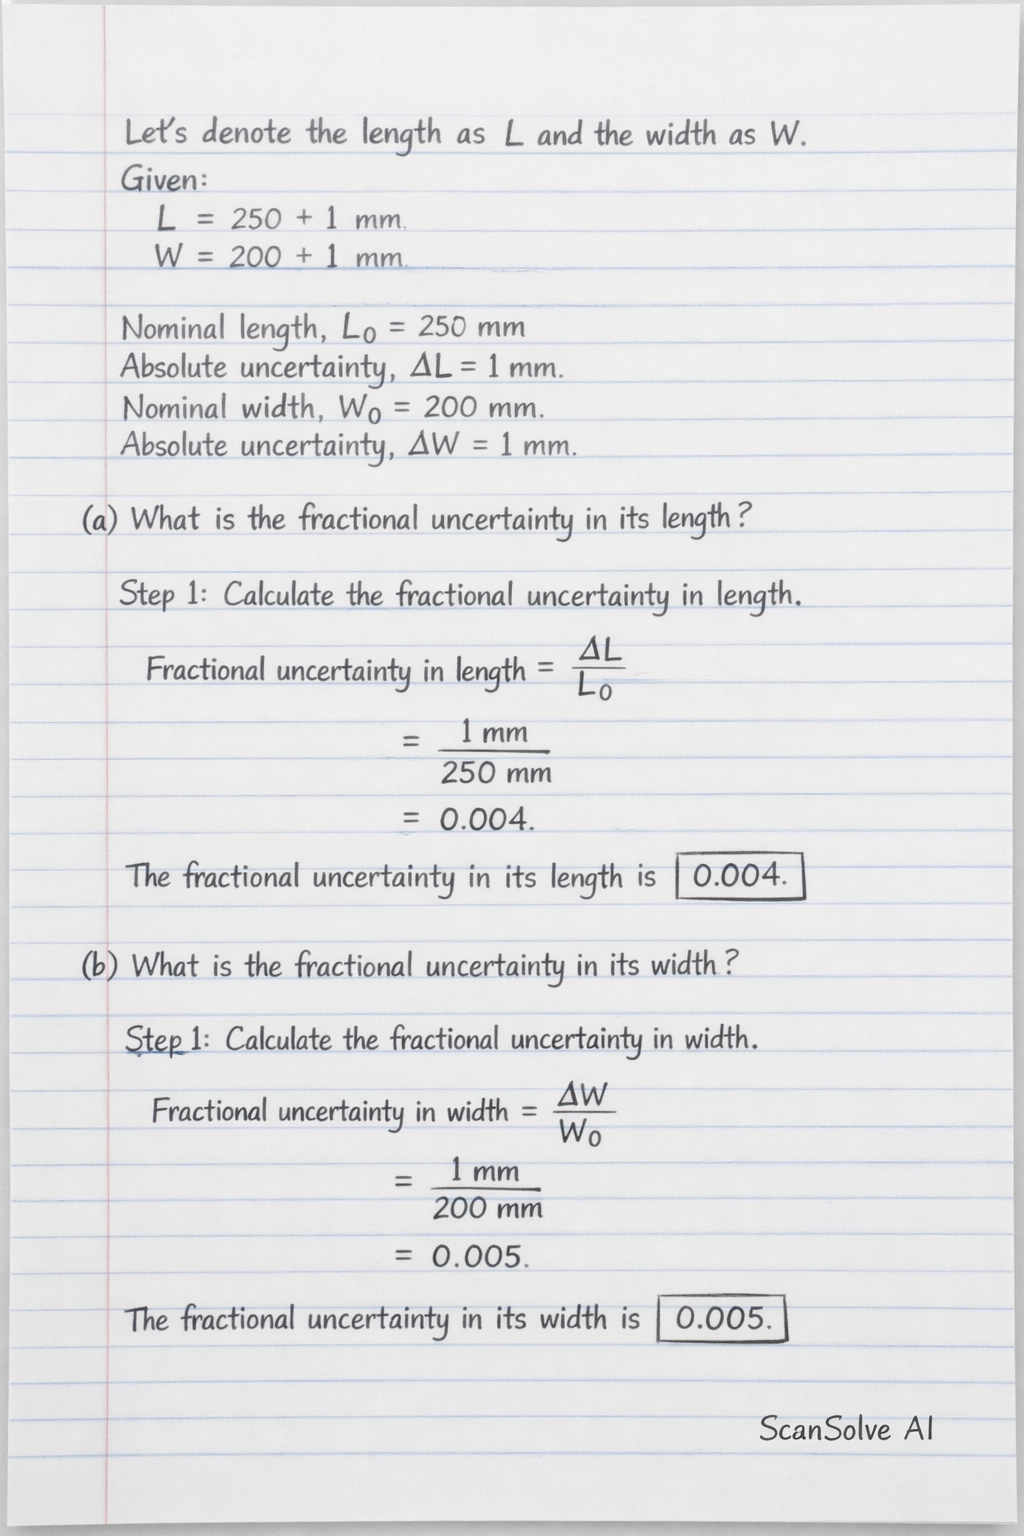 Let's denote the length as L and the width as W.
Given:
L = 250 + 1 mm.
W = 200 + 1 mm.
Nominal length, L₀ = 250 mm
Absolute uncertainty, ΔL = 1 mm.
Nominal width, W₀ = 200 mm.
Absolute uncertainty, ΔW = 1 mm.
(a) What is the fractional uncertainty in its length?
Step 1: Calculate the fractional uncertainty in length.
Fractional uncertainty in length = ΔL / L₀
= 1 mm / 250 mm
= 0.004.
The fractional uncertainty in its length is 0.004.
(b) What is the fractional uncertainty in its width?
Step 1: Calculate the fractional uncertainty in width.
Fractional uncertainty in width = ΔW / W₀
= 1 mm / 200 mm
= 0.005.
The fractional uncertainty in its width is 0.005.
ScanSolve AI